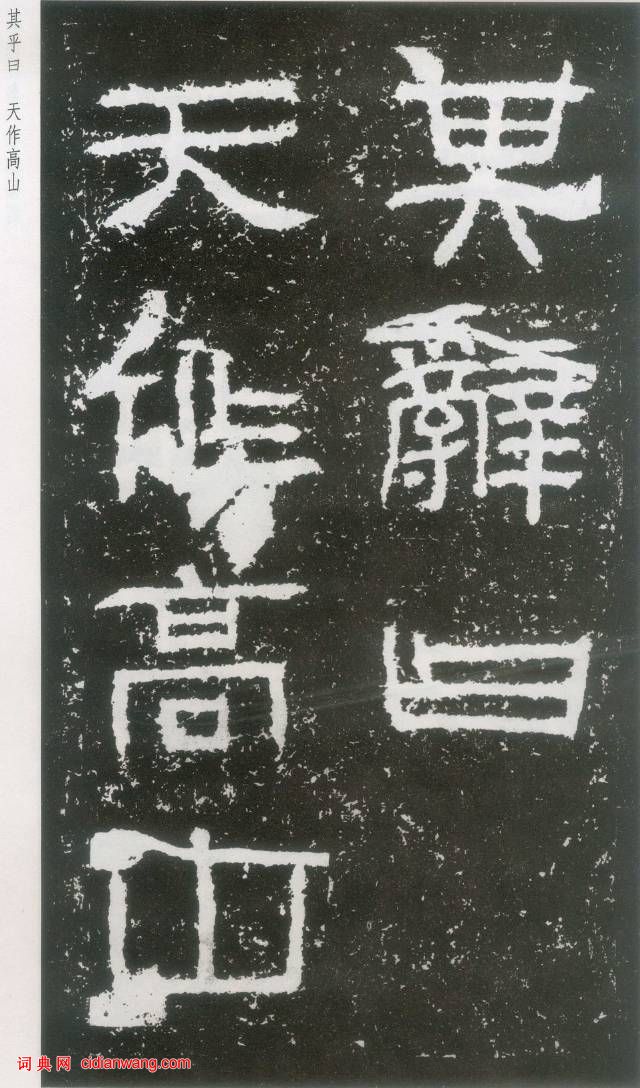 其辭曰
天作高山
其乎曰 天作高山
词典网 cidianwang.com